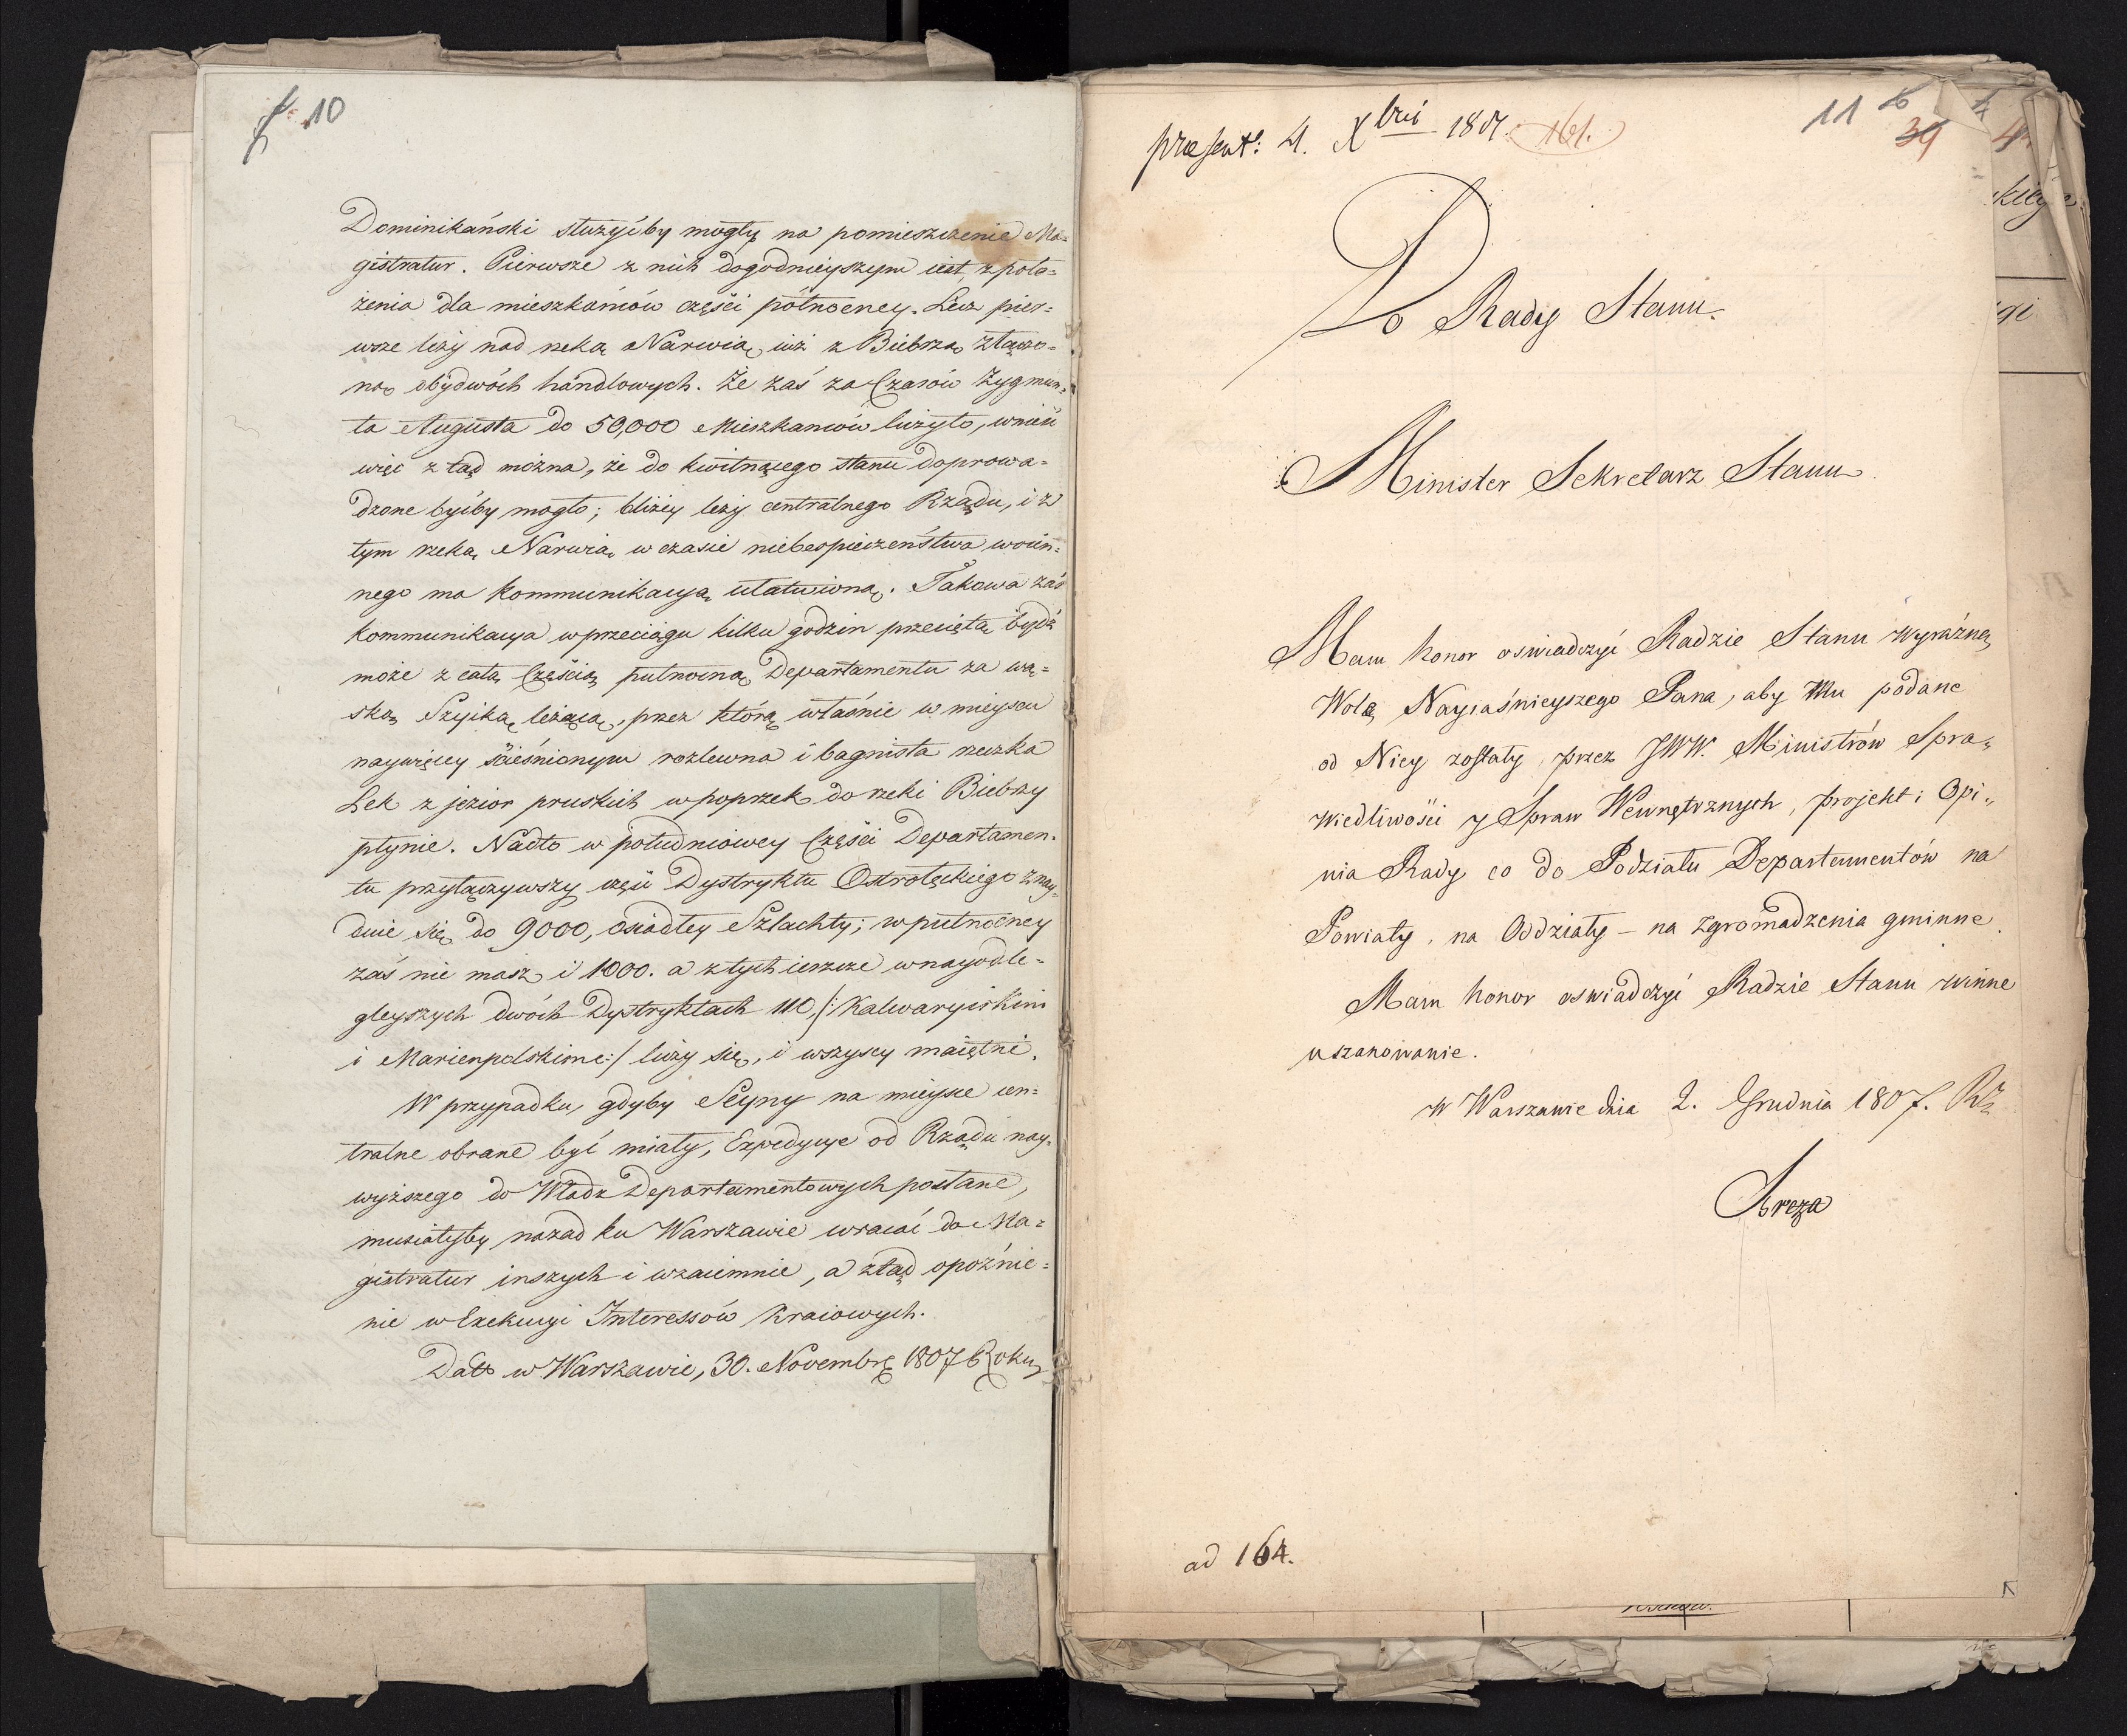 10
Dominikański służyćby mogły na pomieszczenie Ma=
gistratur. Pierwsze z nich dogodnieyszym iest z poło=
żenia dla mieszkańców części północney. Lecz pier=
wsze leży nad rzeką Narwią, iuż z Biebrzą złączo=
ną obydwóch handlowych. Że zaś za Czasów Zygmun=
ta Augusta do 50,000 Mieszkancow liczyło, wnieść
więc ztąd można, że do kwitnącego stanu doprowa=
dzone byćby mogło; bliżey leży centralnego Rządu, i z
tym rzeką Narwią w czasie niebespieczeństwa woien=
nego ma kommunikacyą ułatwioną. Takowa zaś
kommunikacya w przeciągu kilku godzin przeciętą bydź
może z całą Częścią pułnocną Departamentu za wą=
ską Szyiką leżącą, przez którą właśnie w mieyscu
naywięcey ścieśnionym rozlewna i bagnista rzeczka
Lek z jezior pruskich w poprzek do rzeki Biebrzy
płynie. Nadto w południowey Części Departamen=
tu przyłączywszy część Dystryktu Ostrołęckiego znay=
duie się do 9000, osiadłey Szlachty; w pułnocney
zaś nie masz i 1000. a z tych ieszcze w nayodle=
gleyszych dwóch Dystryktach 110, /: Kalwaryiskim
i Marienpolskim :/ liczy się, i wszyscy maiętni.
W przypadku, gdyby Seyny na mieysce cen=
tralne obrane być miały, Expedycye od Rządu nay=
wyższego do Władz Departamentowych posłane,
musiałyby nazad ku Warszawie wracać do Ma=
gistratur inszych i wzaiemnie, a ztąd opoźnie=
nie w Exekucyi Interessów Kraiowych.
Datt w Warszawie, 30. Novembrs 1807 Roku
praesent: 4. Xbris 1807. 161.
11
39
Do Rady Stanu.
Minister Sekretarz Stanu
Mam honor oswiadczyć Radzie Stanu wyraźną
Wolą Nayiaśnieyszego Pana, aby Mu podane
od Niey zostały, przez JWW. Ministrów Spra„
wiedliwości y Spraw Wewnętrznych, projekt i Opi„
nia Rady co do Podziału Departamentów na
Powiaty, na Oddziały – na Zgromadzenia gminne.
Mam honor oswiadczyć Radzie Stanu winne
uszanowanie.
w Warszawie dnia 2. Grudnia 1807. Rz
Breza
ad 164.